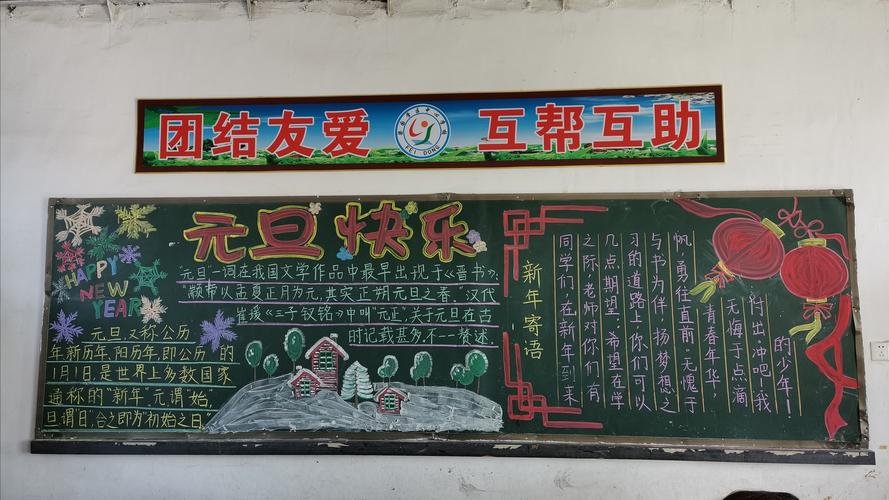 团结友爱 互帮互助
元旦快乐
HAPPY
NEW
YEAR
元旦,又称公历
年新历年,阳历年,即公历 的
1月1日,是世界上多数国家
通称的“新年”.元谓‘始,
旦谓‘日’,合之即为‘初始之日’.
“元旦”一词在我国文学作品中最早出现于《晋书》:
“颛带以孟夏正月为元,其实正朔元旦之春”汉代
崔瑗《三子钗铭》中叫“元正”,关于元旦在古
时记载甚多,不一一赘述.
新年寄语
同学们,在新年到来
之际,老师对你们有
几点期望:希望在学
习的道路上,你们可以
与书为伴,扬梦想之
帆,勇往直前.无愧于
青春年华,
无悔于点滴
付出.冲吧!我
的少年!